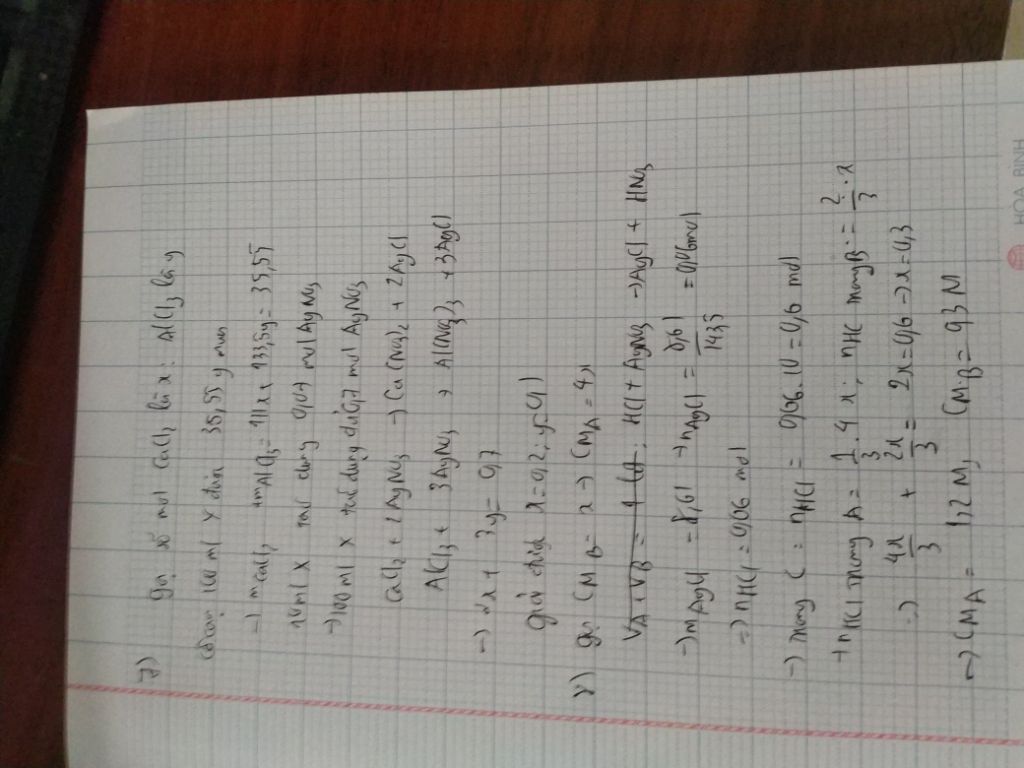 7) Gọi số mol CaCl₂ là x; AlCl₃ là y
Cô cạn 100 ml Y được 35,55 g muối
→ mCaCl₂ + mAlCl₃ = 111x + 133,5y = 35,55
10 ml X tác dụng 0,07 mol AgNO₃
→ 100 ml X tác dụng đủ 0,7 mol AgNO₃
CaCl₂ + 2AgNO₃ → Ca(NO₃)₂ + 2AgCl
AlCl₃ + 3AgNO₃ → Al(NO₃)₃ + 3AgCl
→ 2x + 3y = 0,7
giải được x = 0,2; y = 0,1
8) gọi CM B = x → CM A = 4x
VA + VB = 1 lít; HCl + AgNO₃ → AgCl + HNO₃
→ mAgCl = 8,61 → nAgCl = 8,61/143,5 = 0,06 mol
→ nHCl = 0,06 mol
→ trong C: nHCl = 0,06.10 = 0,6 mol
→ nHCl trong A = 1/3.4x; nHCl trong B = 2/3.x
→ 4x/3 + 2x/3 = 2x = 0,6 → x = 0,3
→ CM A = 1,2 M, CM B = 0,3 M
HOA BINH